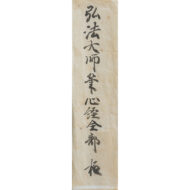 弘法大師筆心経全部